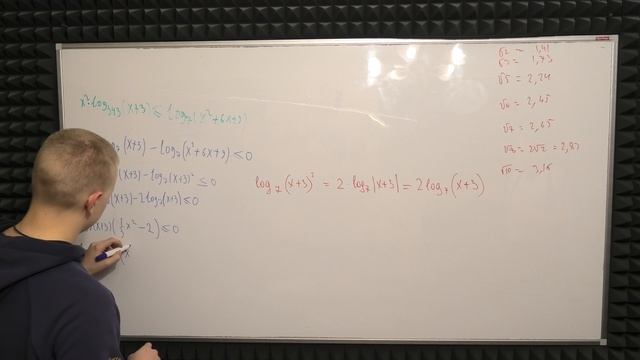 x²·log₃₄₃(x+3) ≤ log₇(x²+6x+9)
(x+3) − log₇(x²+6x+9) ≤ 0
(x+3) − log₇(x+3)² ≤ 0
(x+3) − 2log₇(x+3) ≤ 0
(x+3)(⅓x²−2) ≤ 0
(x
log₇(x+3)² = 2·log₇|x+3| = 2log₇(x+3)
√2 = 1,41
√3 = 1,73
√5 = 2,24
√6 = 2,45
√7 = 2,65
√8 = 2√2 = 2,83
√10 = 3,16